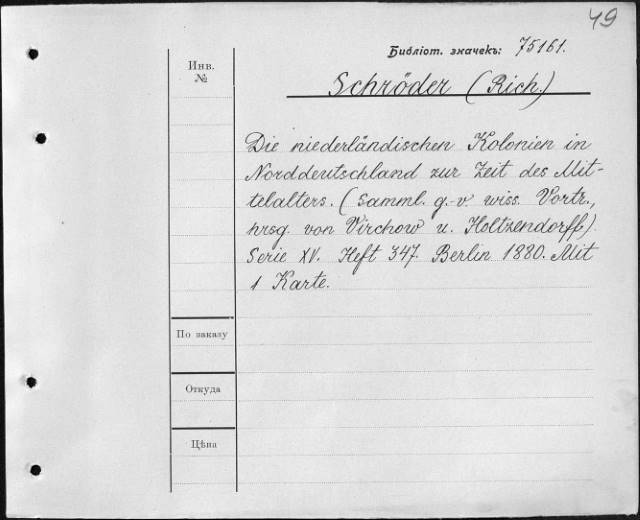 49
Библіот. значекъ: 75161.
Инв.
№
Schröder (Rich.)
Die niederländischen Kolonien in
Norddeutschland zur Zeit des Mit-
telalters. (Samml. g.-v. wiss. Vortr.,
hrsg. von Virchow u. Holtzendorff).
Serie XV. Heft 347. Berlin 1880. Mit
1 Karte.
По заказу
Откуда
Цѣна